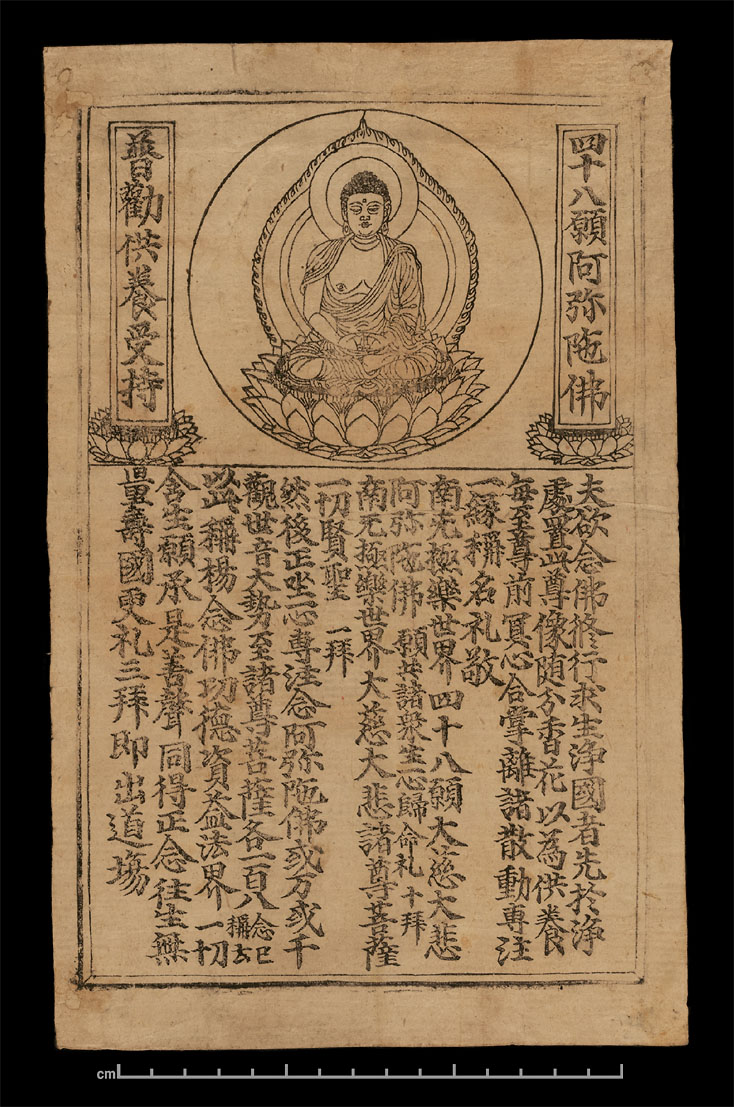 四十八願阿弥陁佛
普勸供養受持
夫欲念佛修行求生淨國者先於淨
處置此尊像随分香花以為供養
每至尊前冥心合掌離諸散動專注
一緣稱名礼敬
南无極樂世界四十八願大慈大悲
阿弥陁佛 願共諸衆生一心歸命礼十拜
南无極樂世界大慈大悲諸尊菩薩
一切賢聖 一拜
然後正坐一心專注念阿弥陁佛或万或千
觀世音大勢至諸尊菩薩各一百八 念已稱云
以此稱楊念佛功德資益法界一切
含生願承是善聲同得正念往生無
量壽國更礼三拜即出道場
cm